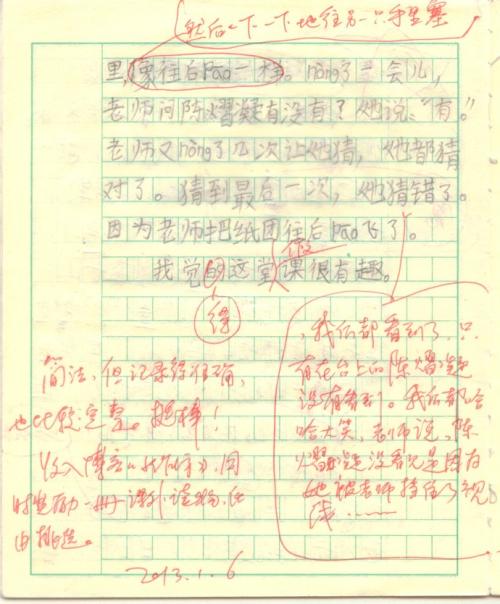 然后一下一下地往另一只手里塞
里,像往后Pao一样。nòng了一会儿,
老师问陈熠凝有没有?她说:“有。”
老师又nòng了几次让她猜,她都猜
对了。猜到最后一次,她猜错了。
因为老师把纸团往后pao飞了。
我觉的这堂课很有趣。
得
微
,我们都看到了,只
有在台上的陈熠凝
没有看到。我们都哈
哈大笑,老师说,陈
熠凝没看见是因为
她被老师挡住了视
线……
简洁,但记录得准确,
也比较完整。挺棒!
收入博客,同
时奖励一册课外读物,任
由挑选。
2013.1.6